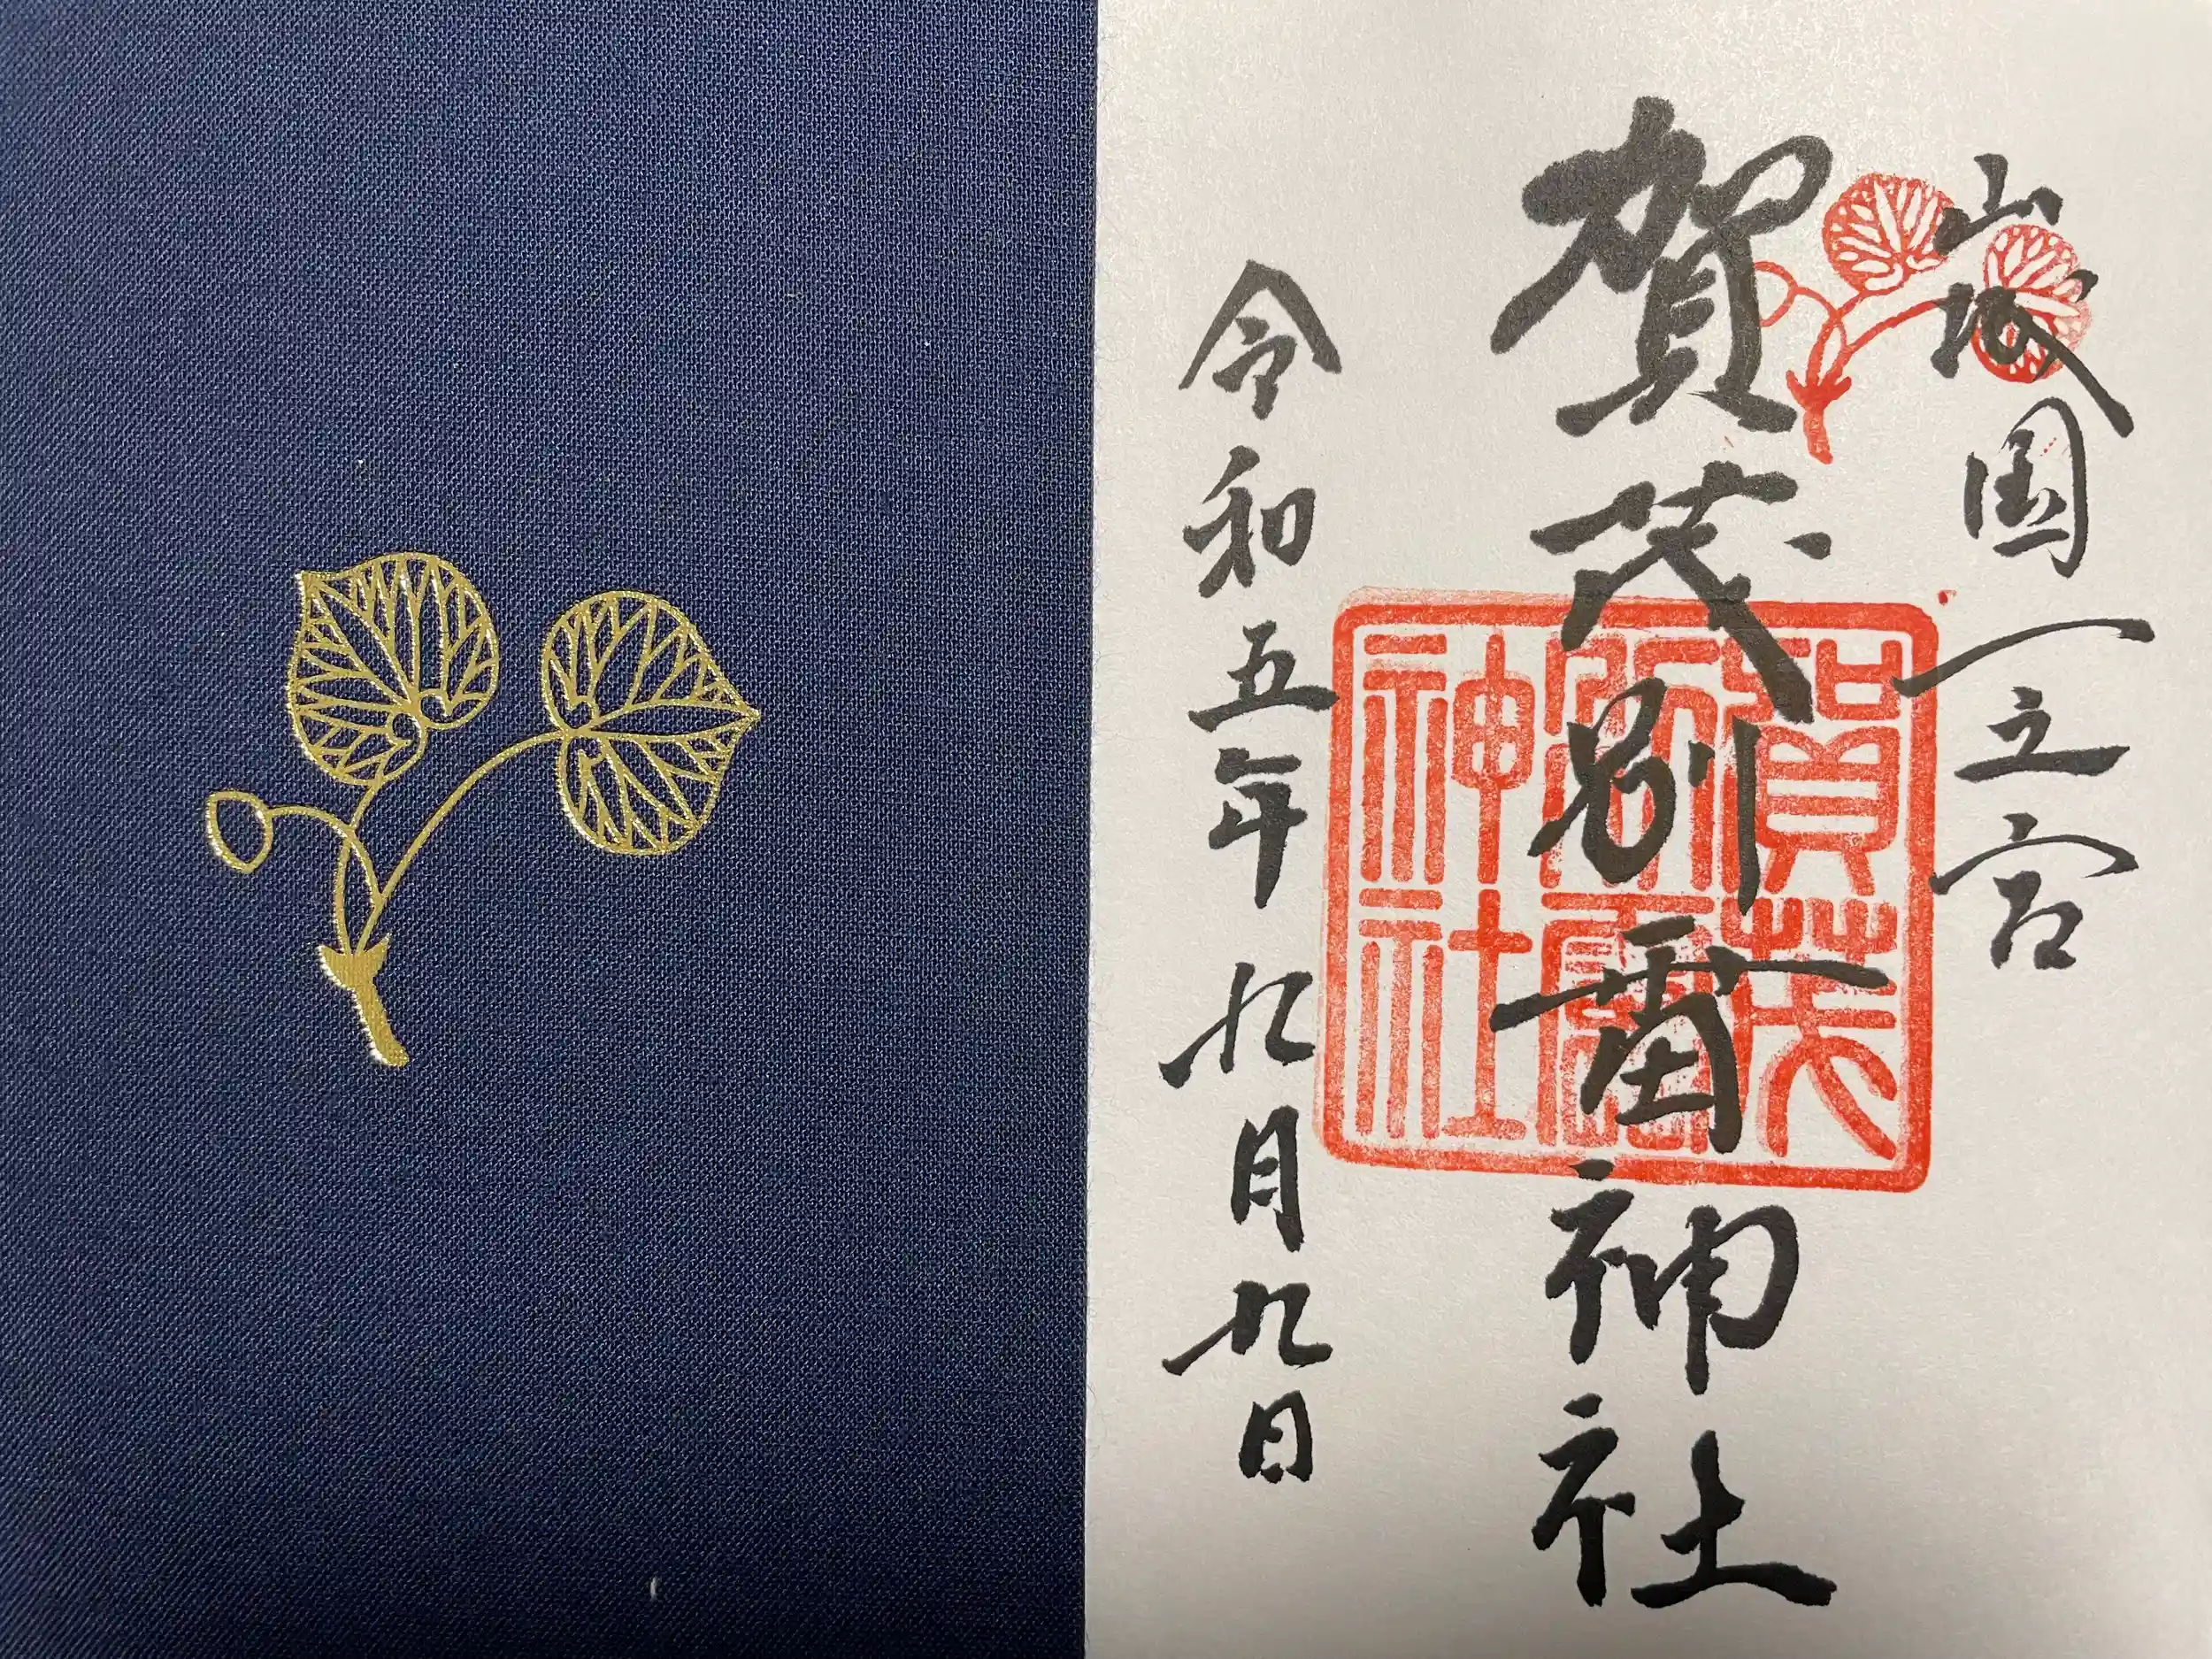 山城国一之宮
賀茂別雷神社
賀茂
別雷
神社
令和五年九月九日